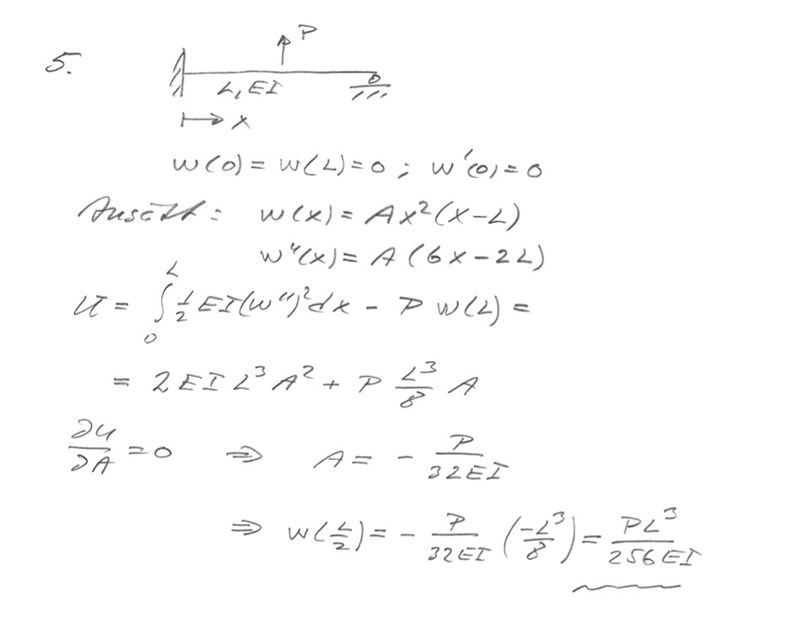 5.
P
L, EI
x
w(0) = w(L) = 0 ; w'(0) = 0
Ansätt : w(x) = Ax²(x-L)
w''(x) = A(6x-2L)
U = ∫₀ᴸ ½ EI(w'')²dx - P w(L) =
= 2EIL³A² + P L³/8 A
∂U/∂A = 0 ⇒ A = - P/32EI
⇒ w(L/2) = - P/32EI (-L³/8) = PL³/256EI